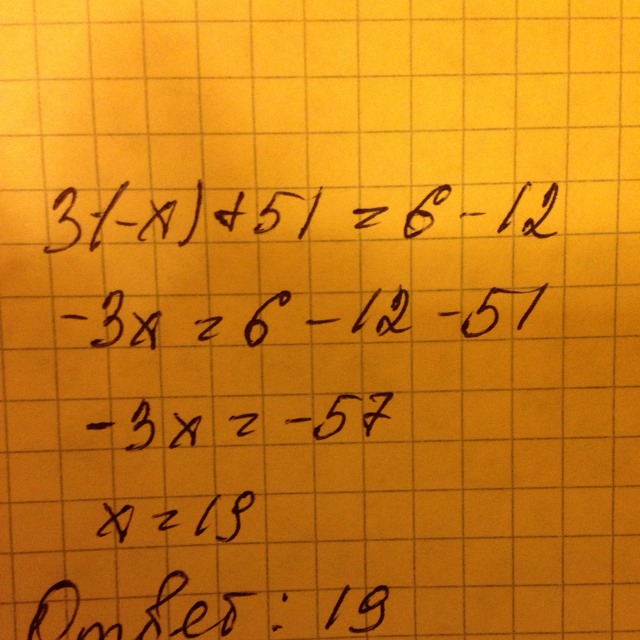 3(-x)+51 = 6-12
-3x = 6-12-51
-3x = -57
x = 19
Ответ: 19